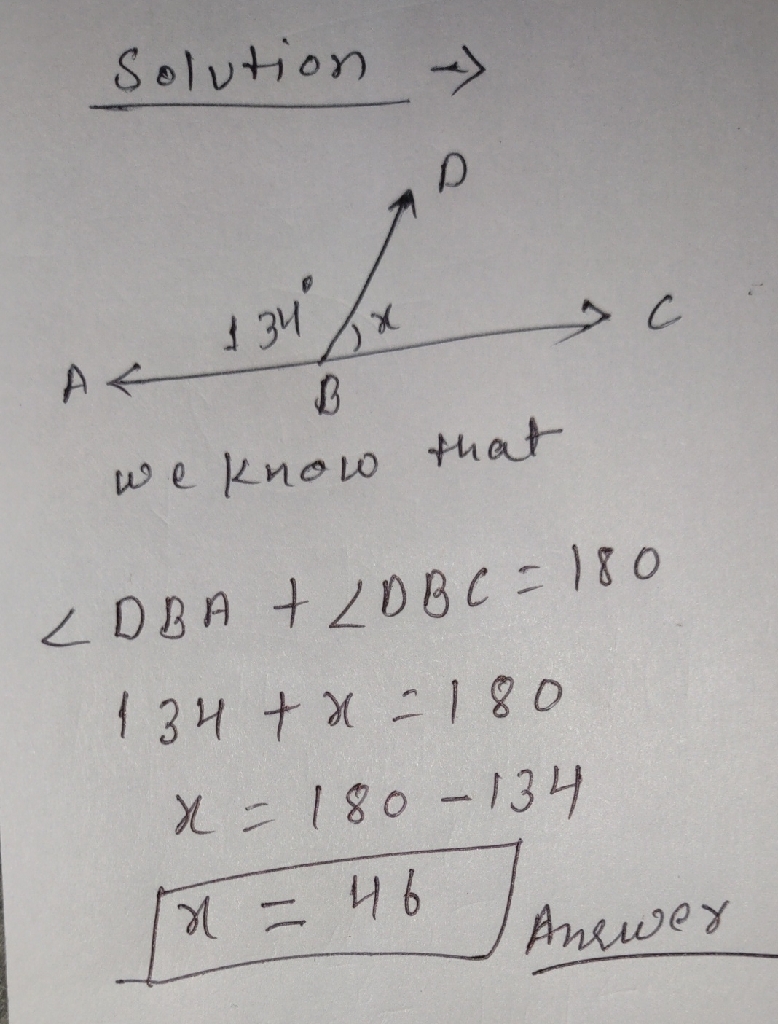 Solution →
D
134° x
A B C
we know that
∠DBA + ∠DBC = 180
134 + x = 180
x = 180 - 134
x = 46 Answer